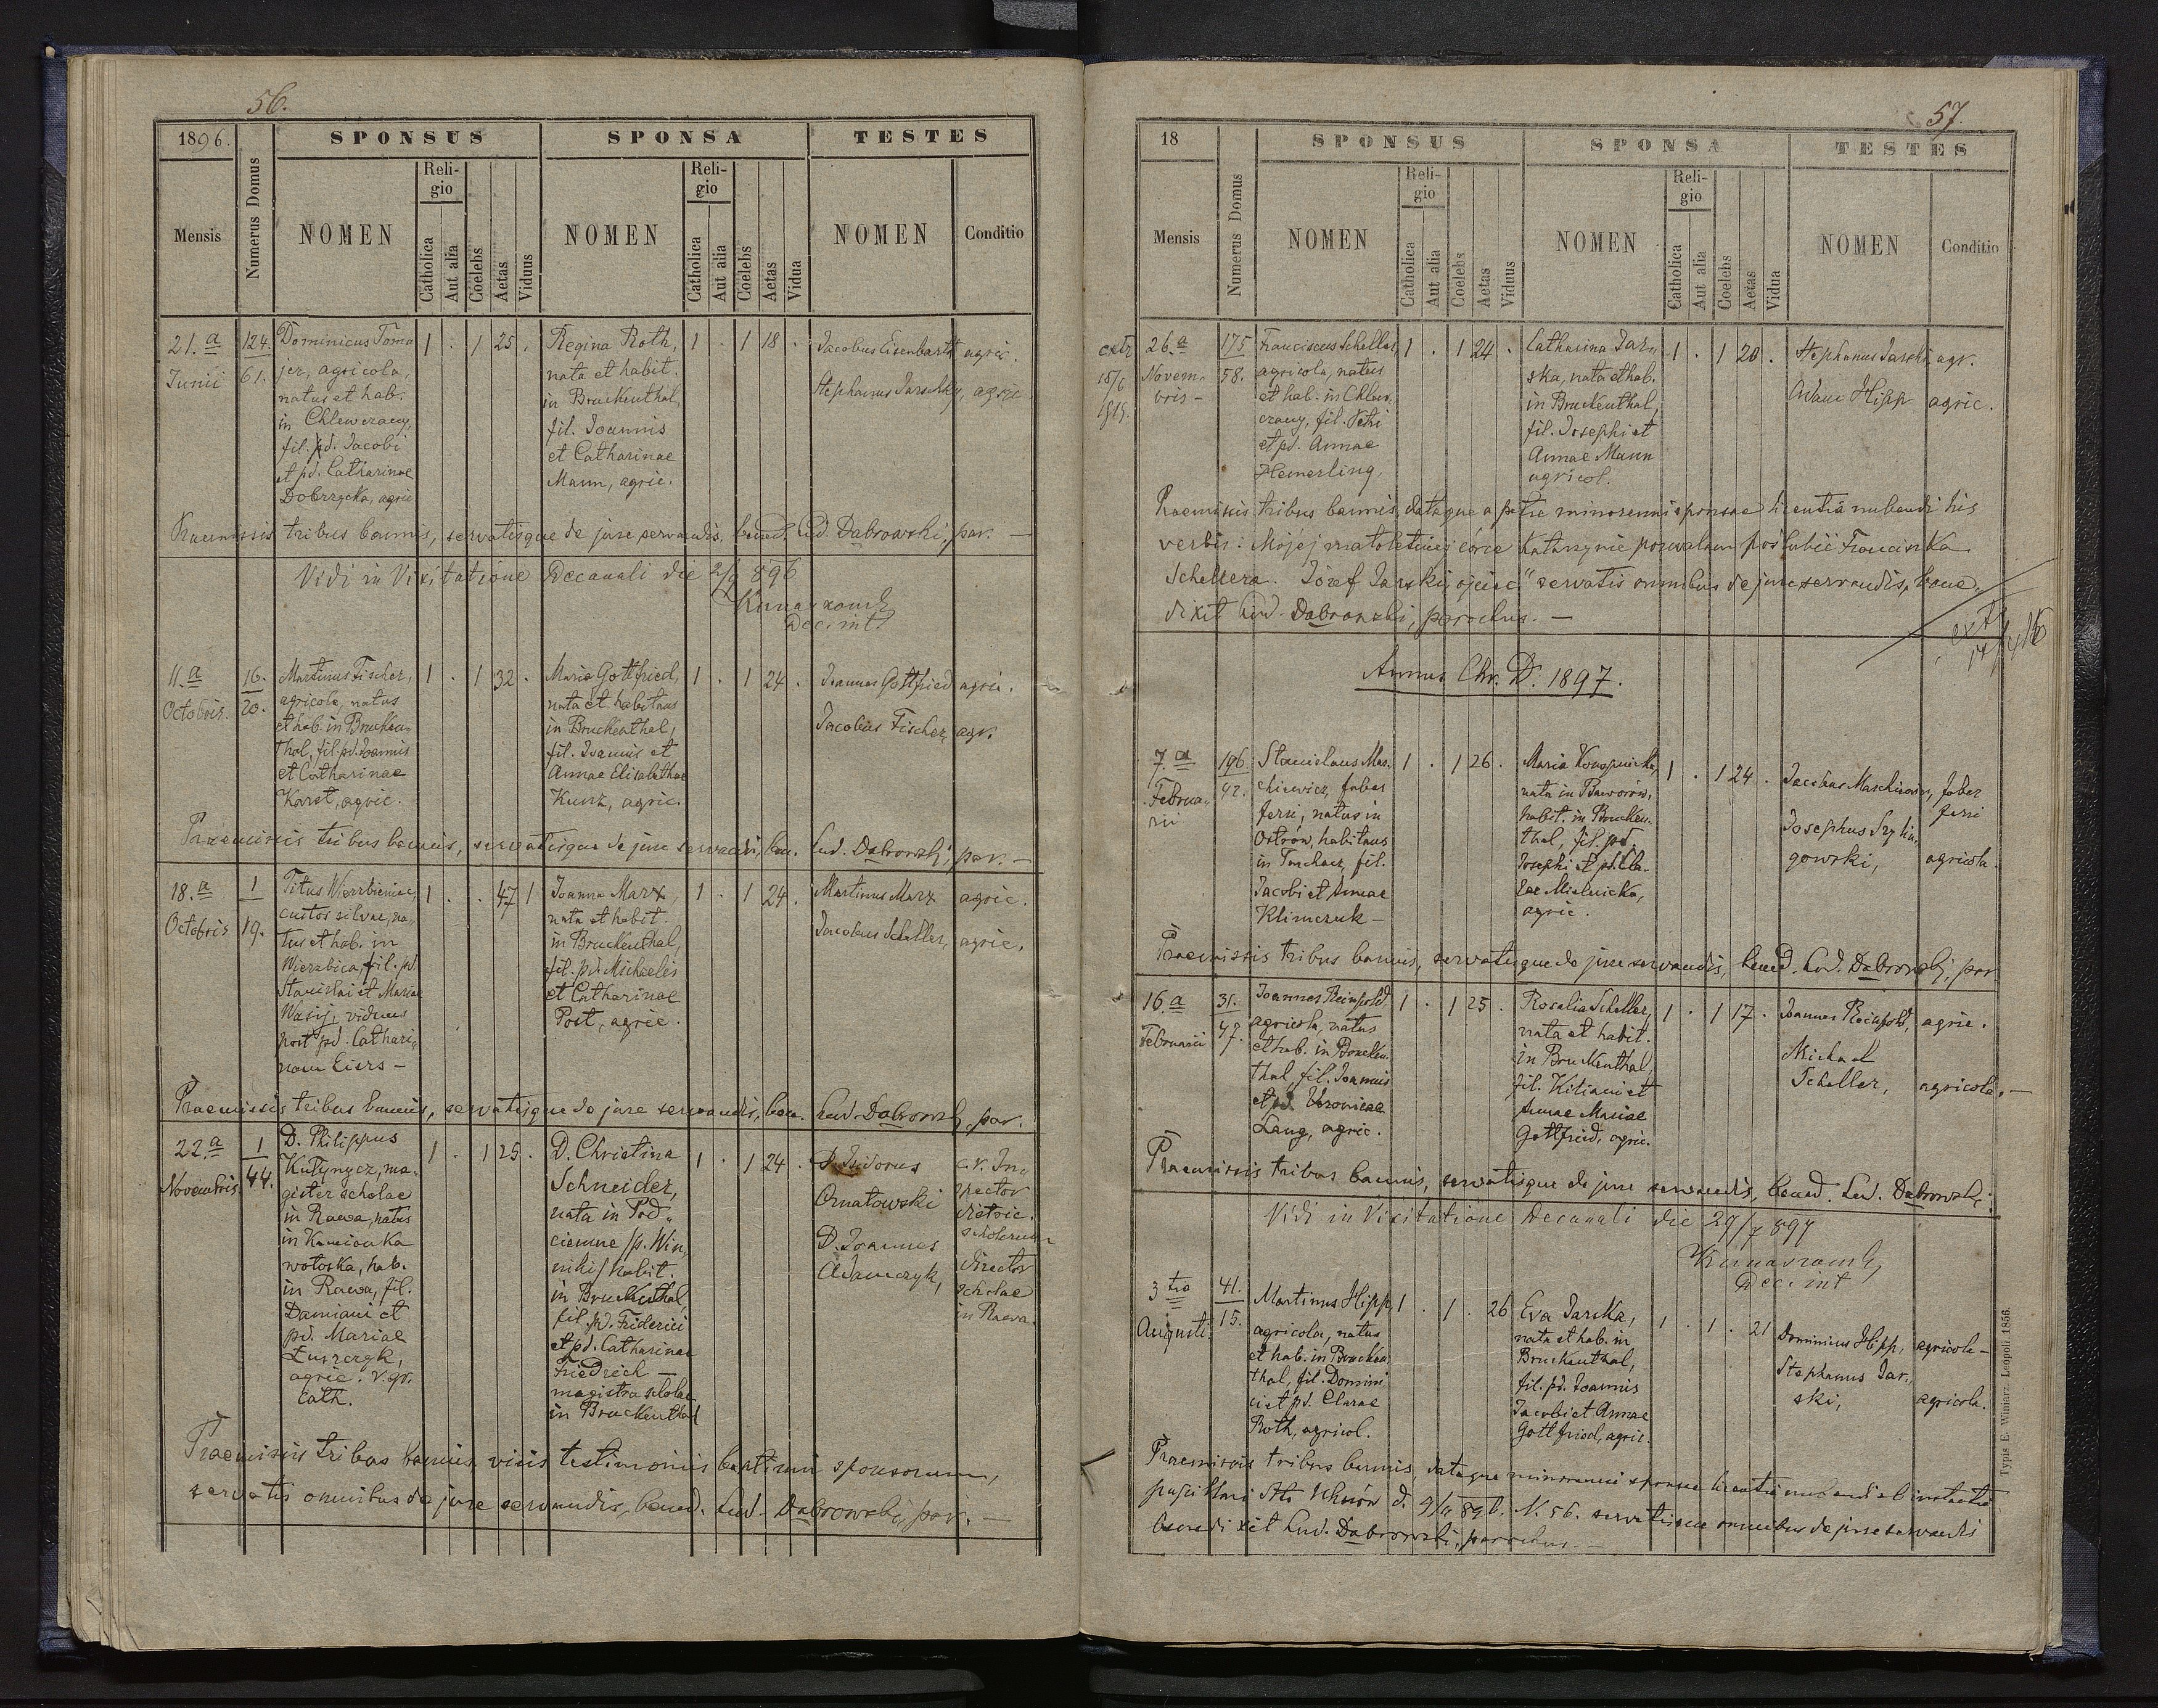 56.
1896.
SPONSUS
SPONSA
TESTES
Mensis
Numerus Domus
NOMEN
Religio
Catholica
Aut alia
Coelebs
Aetas
Viduus
NOMEN
Religio
Catholica
Aut alia
Coelebs
Aetas
Vidua
NOMEN
Conditio
21.a
Junii
124.
61.
Dominicus Toma
jer, agricola,
natus et hab.
in Chlewczany,
fil. pd. Jacobi
et pd. Catharinae
Dobrzycka, agric
1 . 1 25 .
Regina Roth,
nata et habit.
in Bruckenthal,
fil. Joannis
et Catharinae
Mann, agric.
1 . 1 18 .
Jacobus Eisenbarth agric.
Stephanus Jarschky, agric
Praemissis tribus bannis, servatisque de jure servandis, bened. Lud. Dabrowski, par. —
Vidi in Visitatione Decanali die 2/9 896
Dec. int.
11.a
Octobris.
16.
20.
Martinus Fischer,
agricola, natus
et hab. in Brucken-
thal, fil. pd. Joannis
et Catharinae
Karst, agric.
1 . 1 32 .
Maria Gottfried,
nata et habitans
in Bruckenthal,
fil. Joannis et
Annae Elisabethae
Kunz, agric.
1 . 1 24 .
Joannes Gottfried agric.
Jacobus Fischer, agr.
Praemissis tribus bannis, servatisque de jure servandis, ben. Lud. Dabrowski, par. —
18.a
Octobris
1
19.
Titus Wierzbieniec,
custos silvae, na-
tus et hab. in
Wierzbica, fil. pd.
Stanislai et Mariae
Wasij, viduus
post pd. Cathari-
nam Eisrs —
1 . . 47 1
Joanna Marx,
nata et habit.
in Bruckenthal,
fil. pd. Michaelis
et Catharinae
Post, agric.
1 . 1 24 .
Martinus Marx agric.
Jacobus Scheller, agric.
Praemissis tribus bannis, servatisque de jure servandis, ben. Lud. Dabrowski, par.
22.a
Novembris.
1
44.
D. Philippus
Kutynycz, ma-
gister scholae
in Rawa, natus
in Kamionka
wołoska, hab.
in Rawa, fil.
Damiani et
pd. Mariae
Łuszczyk,
agric. r. gr.
Cath.
1 . 1 25 .
D. Christina
Schneider,
nata in Pod-
ciemne /p. Win-
niki/ habit.
in Bruckenthal,
fil. pd. Friderici
et pd. Catharinae
Friedrich —
magistra scholae
in Bruckenthal
1 . 1 24 .
D. Isidorus
Ornatowski
D. Joannes
Adamczyk,
c. r. In-
spector
district.
scholarum
director
scholae
in Rawa
Praemissis tribus bannis, visis testimoniis baptismi sponsorum,
servatis omnibus de jure servandis, bened. Lud. Dabrowski, par. —
57.
18
SPONSUS
SPONSA
TESTES
Mensis
Numerus Domus
NOMEN
Religio
Catholica
Aut alia
Coelebs
Aetas
Viduus
NOMEN
Religio
Catholica
Aut alia
Coelebs
Aetas
Vidua
NOMEN
Conditio
extr
18/6
1915.
26.a
Novem-
bris —
175.
58.
Franciscus Scheller,
agricola, natus
et hab. in Chlew-
czany, fil. Petri
et pd. Annae
Hemerling.
1 . 1 24 .
Catharina Jar-
ska, nata et hab.
in Bruckenthal,
fil. Josephi et
Annae Mann
agricol.
1 . 1 20 .
Stephanus Jarski agr.
Adam Hipp agric.
Praemissis tribus bannis, dataque a patre minorenni sponsae licentia nubendi his
verbis: „Mojej małoletniej córce Katarzynie pozwalam poślubić Franciszka
Schellera. Józef Jarski, ojciec." servatis omnibus de jure servandis, bene-
dixit Lud. Dabrowski, parochus. —
Annus Chr. D. 1897.
7.a
Februa-
rii
196.
42.
Stanislaus Mas-
chiewicz, faber
ferri, natus in
Ostrów, habitans
in Turchacz, fil.
Jacobi et Annae
Klimczuk —
1 . 1 26 .
Maria Konopnicka,
nata in Baworów,
habit. in Brucken-
thal, fil. pd.
Josephi et pd. Cla-
rae Mielnicka,
agric.
1 . 1 24 .
Jacobus Maschiewicz, faber
ferri
Josephus Szyhin-
gowski, agricola.
Praemissis tribus bannis, servatisque de jure servandis, bened. Lud. Dabrowski, par
16.a
Februarii
31.
47.
Joannes Reinpold
agricola, natus
et hab. in Brucken-
thal, fil. Joannis
et pd. Veronicae
Lang, agric.
1 . 1 25 .
Rosalia Scheller,
nata et habit.
in Bruckenthal,
fil. Kiliani et
Annae Mariae
Gottfried, agric.
1 . 1 17 .
Joannes Reinpold, agric.
Michael
Scheller, agricola. —
Praemissis tribus bannis, servatisque de jure servandis, bened. Lud. Dabrowski.
Vidi in Visitatione Decanali die 29/7 897
Dec. int
3tia
Augusti.
41.
15.
Martinus Hipp,
agricola, natus
et hab. in Brucken-
thal, fil. Domini-
ci et pd. Clarae
Roth, agricol.
1 . 1 . 26
Eva Jarska,
nata et hab. in
Bruckenthal,
fil. pd. Joannis
Jacobi et Annae
Gottfried, agric.
1 . 1 . 21
Dominicus Hipp, agricola —
Stephanus Jar-
ski, agricola.
Praemissis tribus bannis, dataque minorenni sponsae licentia nubendi ab instantia
pupillari Uhnów d. N. 56. servatisque omnibus de jure servandis
benedixit Lud. Dabrowski, parochus. —
Typis E. Winiarz. Leopoli. 1856.